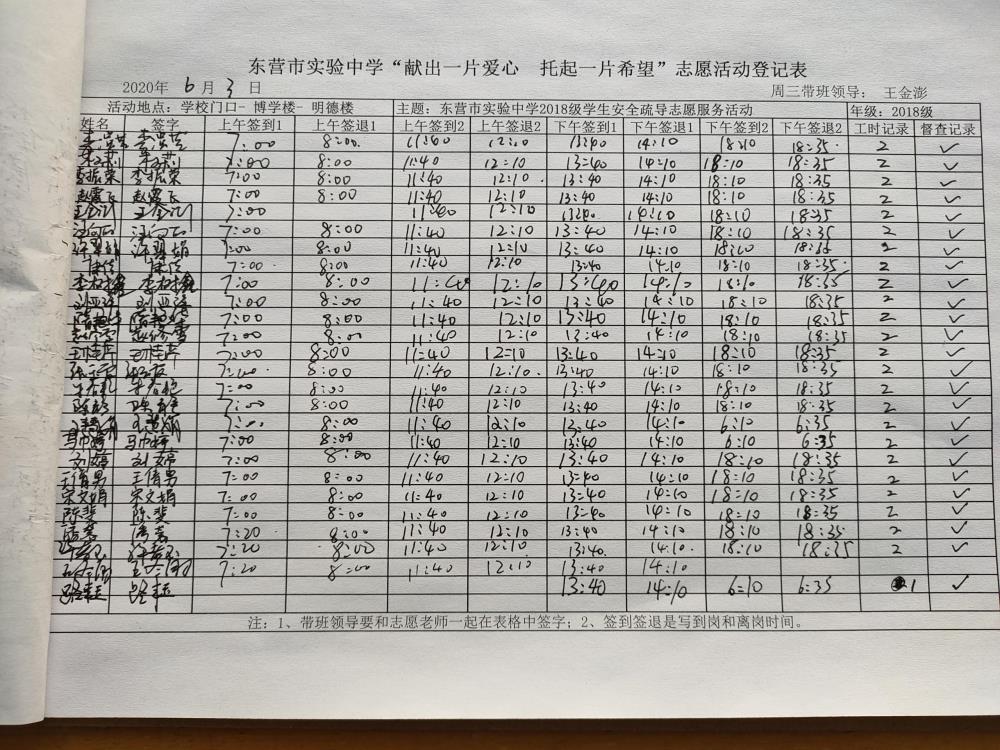 东营市实验中学“献出一片爱心 托起一片希望”志愿活动登记表
2020年 6 月 3 日 周三带班领导: 王金澎
活动地点: 学校门口- 博学楼- 明德楼 主题: 东营市实验中学2018级学生安全疏导志愿服务活动 年级: 2018级
姓名 签字 上午签到1 上午签退1 上午签到2 上午签退2 下午签到1 下午签退1 下午签到2 下午签退2 工时记录 督查记录
7:00 8:00 11:40 12:10 13:40 14:10 18:10 18:35 2 ✓
7:00 8:00 11:40 12:10 13:40 14:10 18:10 18:35 2 ✓
李振荣 李振荣 7:00 8:00 11:40 12:10 13:40 14:10 18:10 18:35 2 ✓
赵霞飞 赵霞飞 7:00 8:00 11:40 12:10 13:40 14:10 18:10 18:35 2 ✓
7:00 11:40 12:10 13:40 14:10 18:10 18:35 2 ✓
7:00 8:00 11:40 12:10 13:40 14:10 18:10 18:35 2 ✓
7:00 8:00 11:40 12:10 13:40 14:10 18:10 18:35 2 ✓
7:00 8:00 11:40 12:10 13:40 14:10 18:10 18:35 2 ✓
7:00 8:00 11:40 12:10 13:40 14:10 18:10 18:35 2 ✓
7:00 8:00 11:40 12:10 13:40 14:10 18:10 18:35 2 ✓
7:00 8:00 11:40 12:10 13:40 14:10 18:10 18:35 2 ✓
7:00 8:00 11:40 12:10 13:40 14:10 18:10 18:35 2 ✓
7:00 8:00 11:40 12:10 13:40 14:10 18:10 18:35 2 ✓
7:00 8:00 11:40 12:10 13:40 14:10 18:10 18:35 2 ✓
7:00 8:00 11:40 12:10 13:40 14:10 18:10 18:35 2 ✓
7:00 8:00 11:40 12:10 13:40 14:10 18:10 18:35 2 ✓
7:00 8:00 11:40 12:10 13:40 14:10 6:10 6:35 2 ✓
7:00 8:00 11:40 12:10 13:40 14:10 6:10 6:35 2 ✓
刘婷 刘婷 7:00 8:00 11:40 12:10 13:40 14:10 18:10 18:35 2 ✓
王倩男 王倩男 7:00 8:00 11:40 12:10 13:40 14:10 18:10 18:35 2 ✓
宋文娟 宋文娟 7:00 8:00 11:40 12:10 13:40 14:10 18:10 18:35 2 ✓
陈斐 陈斐 7:00 8:00 11:40 12:10 13:40 14:10 18:10 18:35 2 ✓
7:20 8:00 11:40 12:10 13:40 14:10 18:10 18:35 2 ✓
7:20 8:00 11:40 12:10 13:40 14:10 18:10 18:35 2 ✓
7:20 8:00 11:40 12:10 13:40 14:10
13:40 14:10 6:10 6:35 1 ✓
注: 1、带班领导要和志愿老师一起在表格中签字; 2、签到签退是写到岗和离岗时间。